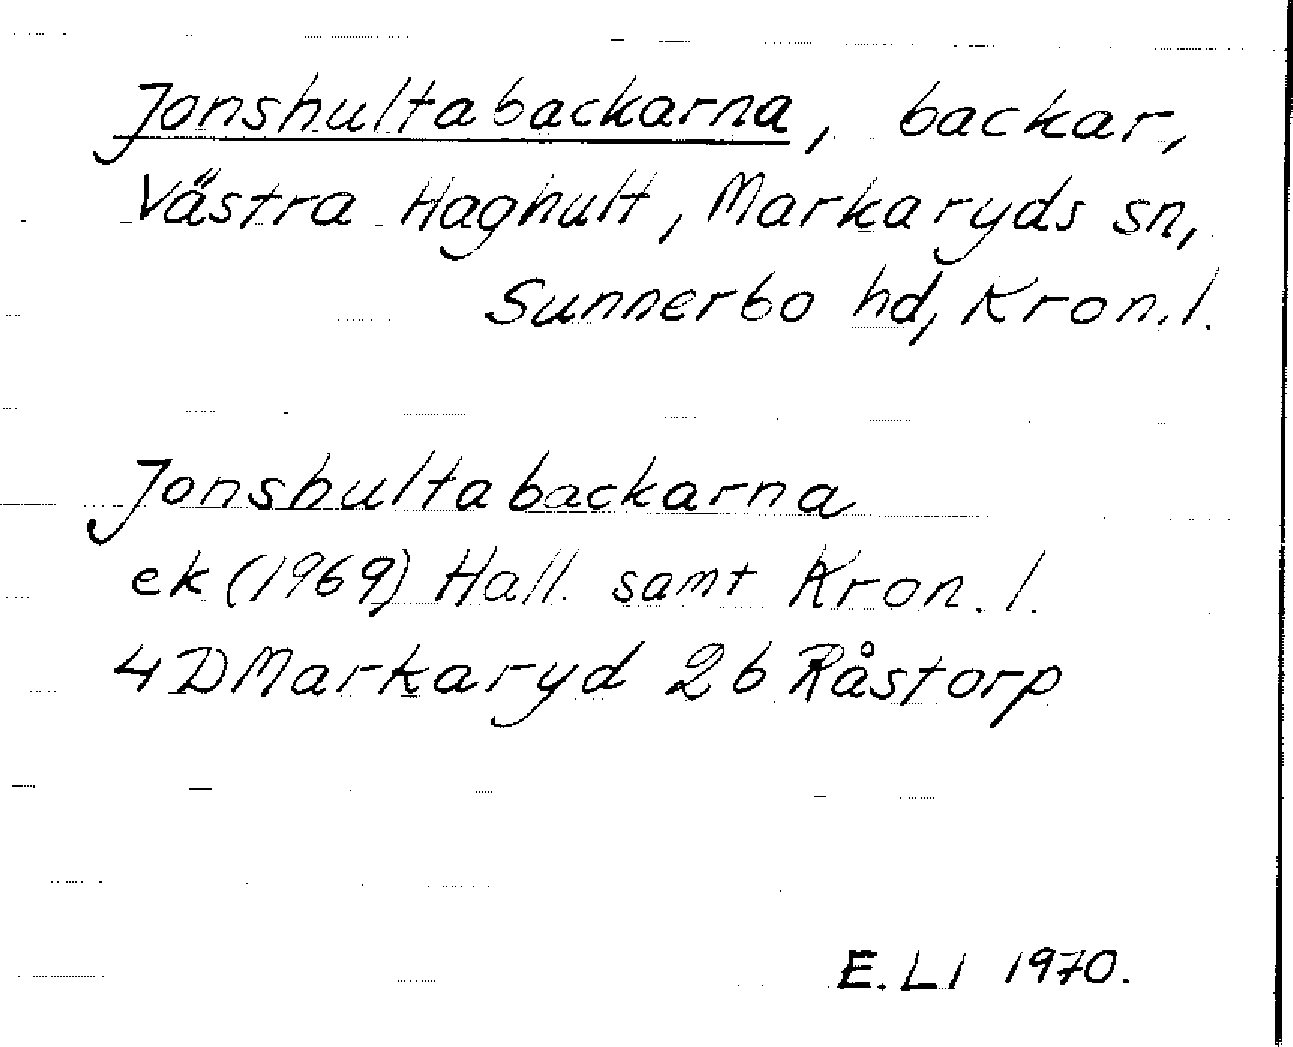 Jonshultabackarna, backar,
Västra Haghult, Markaryds sn,
Sunnerbo hd, Kron. l.
Jonshultabackarna
ek (1969) Hall. samt Kron. l.
4D Markaryd 2b Råstorp
E. L l 1970.